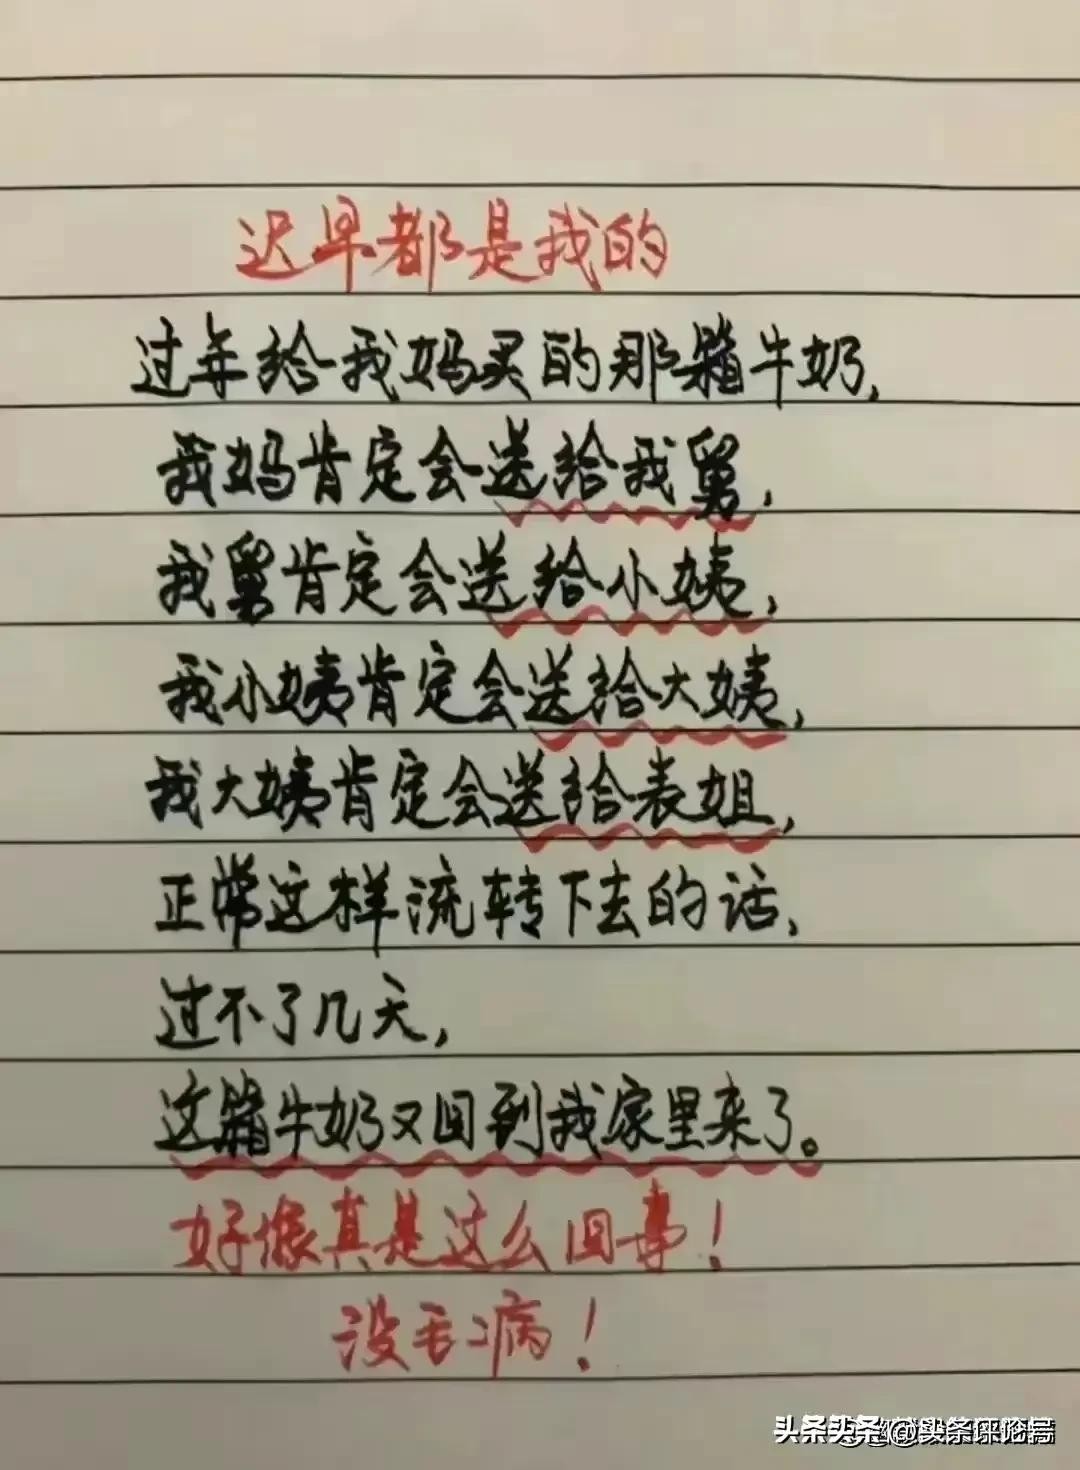 迟早都是我的
过年给我妈买的那箱牛奶,
我妈肯定会送给我舅,
我舅肯定会送给小姨,
我小姨肯定会送给大姨,
我大姨肯定会送给表姐,
正常这样流转下去的话,
过不了几天,
这箱牛奶又回到我家里来了。
好像真是这么回事!
没毛病!
头条头条
@头条评论号